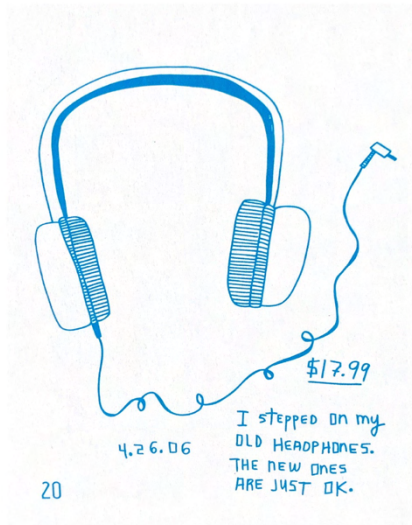 $17.99
4.26.06
I stepped on my
OLD HEADPHONES.
THE NEW ONES
ARE JUST OK.
20